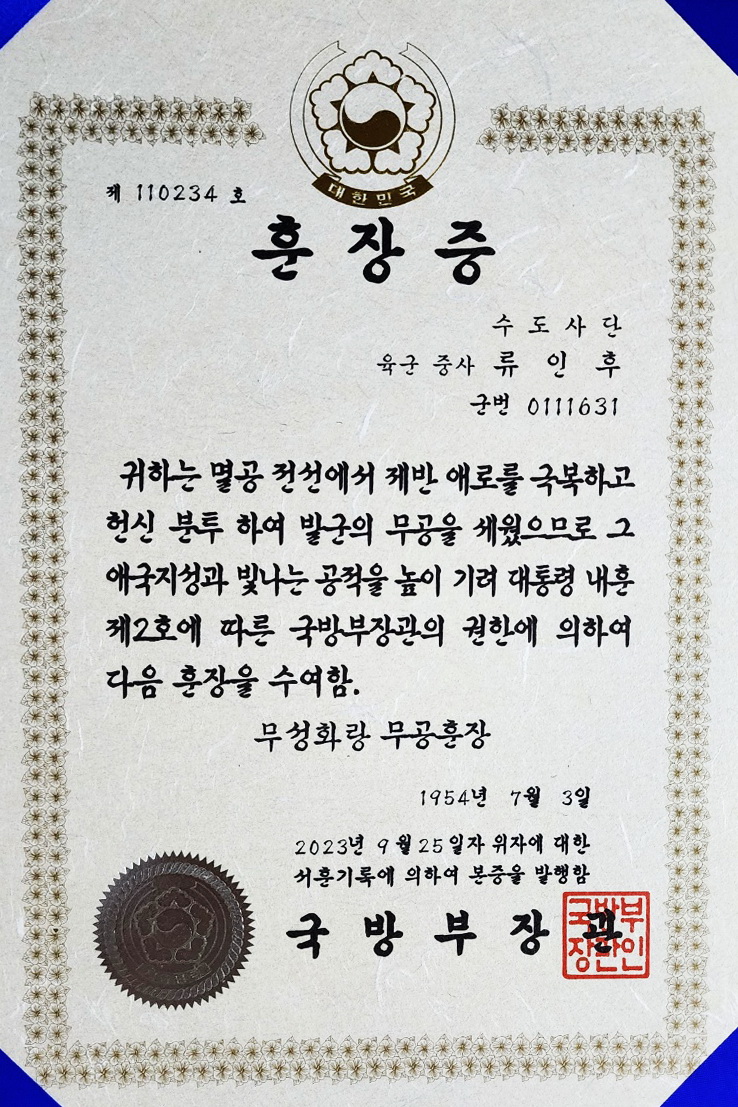 대한민국
제 110234 호
훈장증
수도사단
육군 중사 류인후
군번 0111631
귀하는 멸공 전선에서 제반 애로를 극복하고
헌신 분투 하여 발군의 무공을 세웠으므로 그
애국지성과 빛나는 공적을 높이 기려 대통령 내훈
제2호에 따른 국방부장관의 권한에 의하여
다음 훈장을 수여함.
무성화랑 무공훈장
1954년 7월 3일
2023년 9월 25일자 위자에 대한
서훈기록에 의하여 본증을 발행함
국방부장관
국방부
장관인